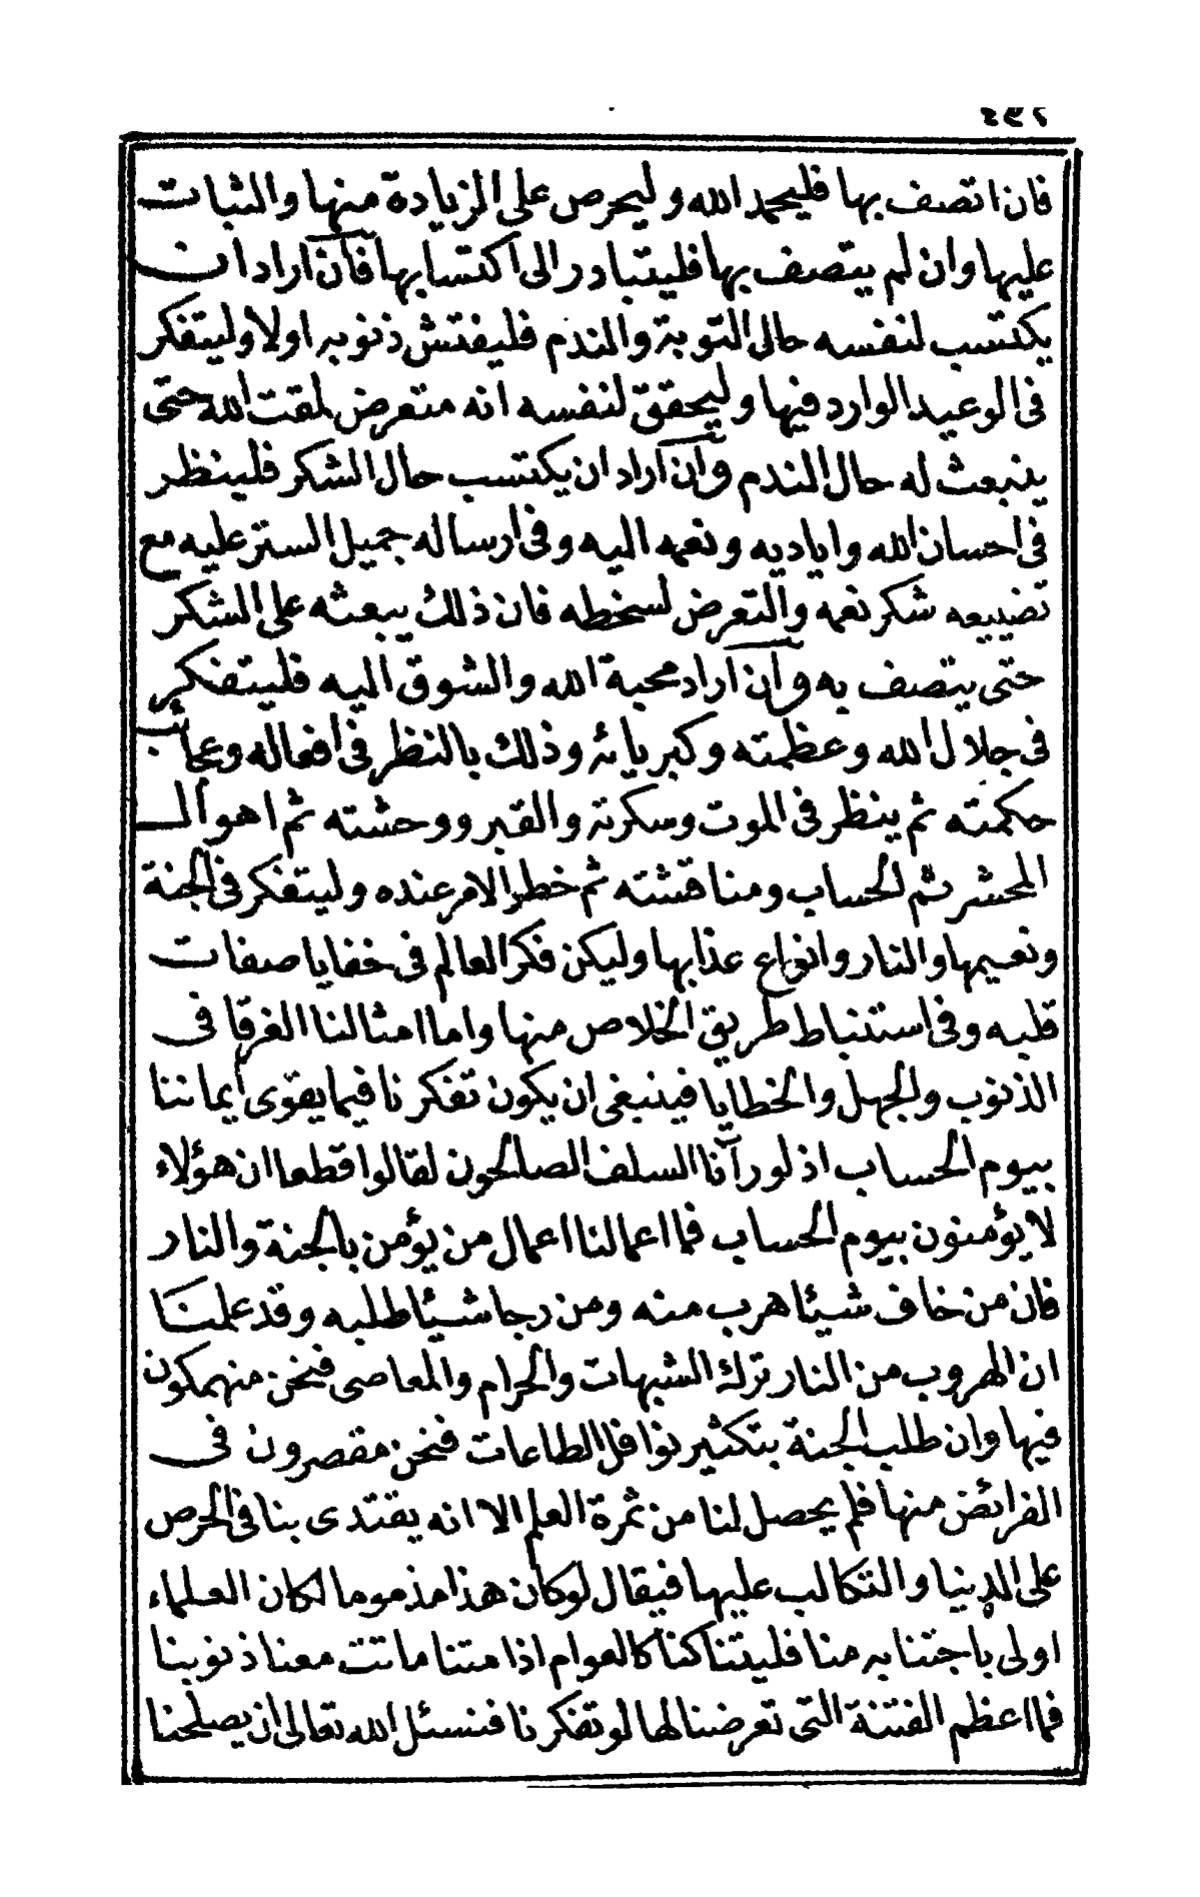 فان اتصف بها فليحمد الله وليحرص على الزيادة منها والثبات
عليها وان لم يتصف بها فليتبادر الى اكتسابها فان اراد ان
يكتسب لنفسه حال التوبة والندم فليفتش ذنوبه اولا وليتفكر
فى الوعيد الوارد فيها وليحقق لنفسه انه متعرض لمقت الله حتى
ينبعث له حال الندم وان اراد ان يكتسب حال الشكر فلينظر
فى احسان الله واياديه ونعمه اليه وفى ارساله جميل الستر عليه مع
تضييعه شكر نعمه والتعرض لسخطه فان ذلك يبعثه على الشكر
حتى يتصف به وان اراد محبة الله والشوق اليه فليتفكر
فى جلال الله وعظمته وكبريائه وذلك بالنظر فى افعاله وعجائب
حكمته ثم ينظر فى الموت وسكرته والقبر ووحشته ثم اهوال
المحشر ثم الحساب ومناقشته ثم خطر الامر عنده وليتفكر فى الجنة
ونعيمها والنار وانواع عذابها وليكن فكر العالم فى خفايا صفات
قلبه وفى استنباط طريق الخلاص منها واما امثالنا الغرقا فى
الذنوب والجهل والخطايا فينبغى ان يكون تفكرنا فيما يقوى ايماننا
بيوم الحساب اذ لو رآنا السلف الصالحون لقالوا قطعا ان هؤلاء
لا يؤمنون بيوم الحساب فما اعمالنا اعمال من يؤمن بالجنة والنار
فان من خاف شيئا هرب منه ومن رجا شيئا طلبه وقد علمنا
ان الهروب من النار ترك الشبهات والحرام والمعاصى فنحن منهمكون
فيها وان طلب الجنة بتكثير نوافل الطاعات فنحن مقصرون فى
الفرائض منها فلم يحصل لنا من ثمرة العلم الا انه يقتدى بنا فى الحرص
على الدنيا والتكالب عليها فيقال لو كان هذا مذموما لكان العلماء
اولى باجتنابه منا فليتنا كنا كالعوام اذا متنا ماتت معنا ذنوبنا
فما اعظم الفتنة التى تعرضنا لها لو تفكرنا فنسئل الله تعالى ان يصلحنا